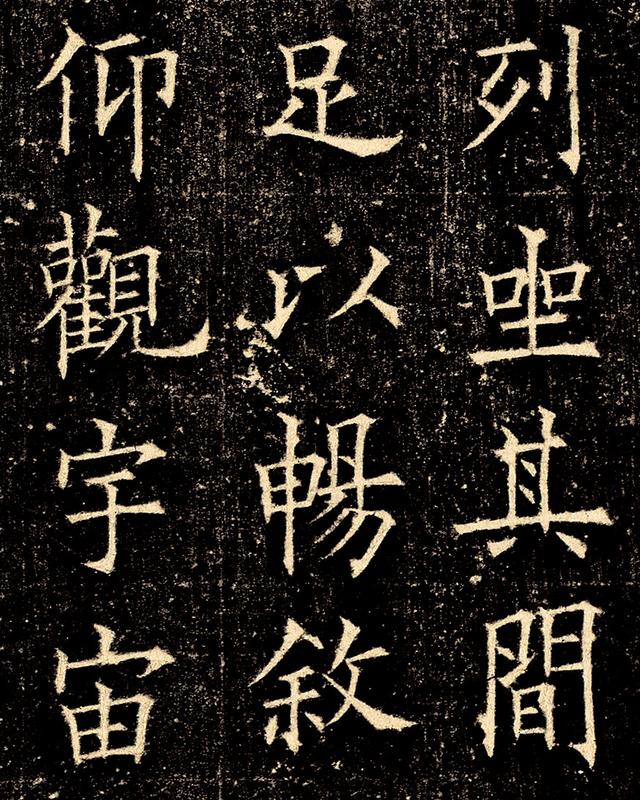 列坐其間
足以暢敘
仰觀字宙